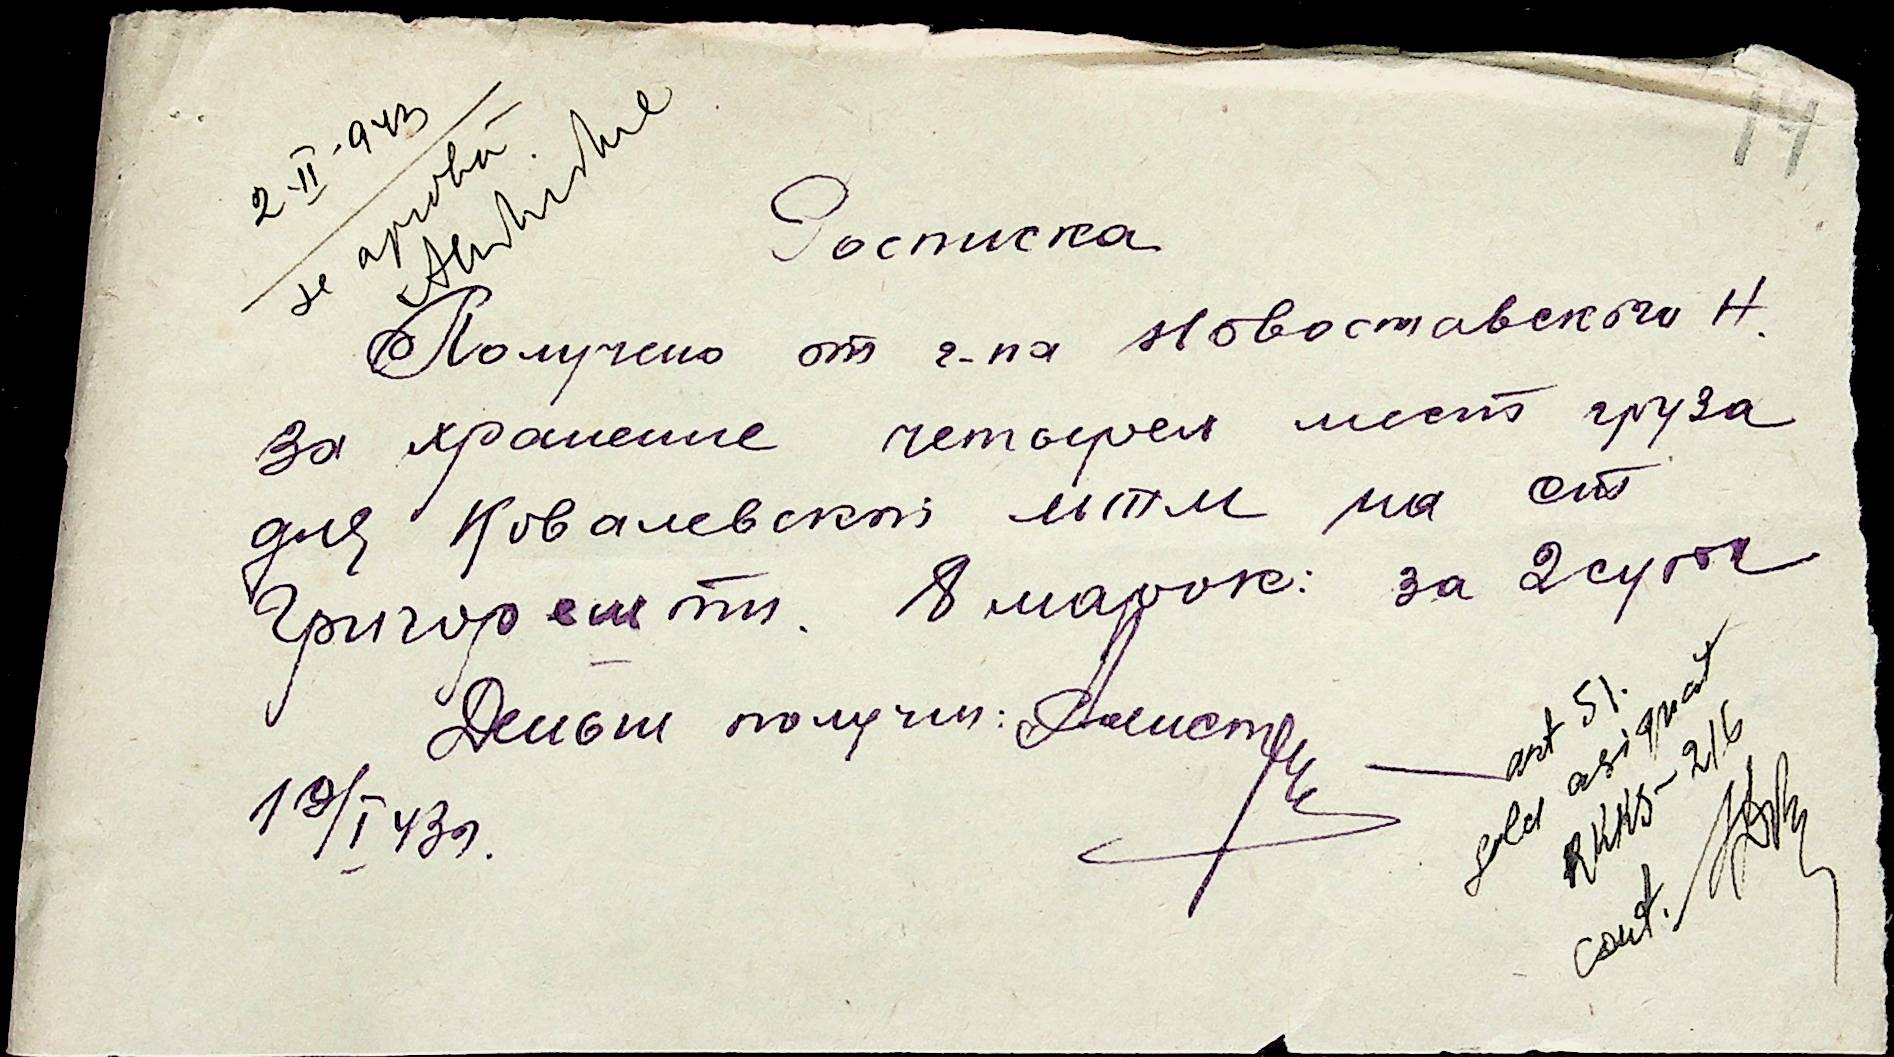 14
2-II-943
se aprobă
Росписка
Получено от г-на Новоставского Н.
за хранение четырех мест груза
для Ковалевской мтм на ст
Григорешти. 8 марок: за 2 суток
Деньги получил:
art 51.
sold asignat
RKKS-216
cont.
19/I 43г.